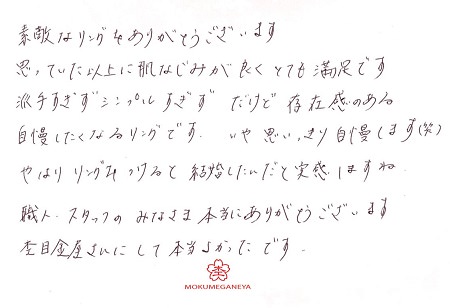 素敵なリングをありがとうございます
思っていた以上に肌なじみが良くとても満足です
派手すぎずシンプルすぎず だけど存在感のある
自慢したくなるリングです. いや思いっきり自慢します(笑)
やはりリングをつけると結婚したんだと実感しますね
職人. スタッフのみなさま本当にありがとうございます
杢目金屋さんにして本当よかったです.
MOKUMEGANEYA